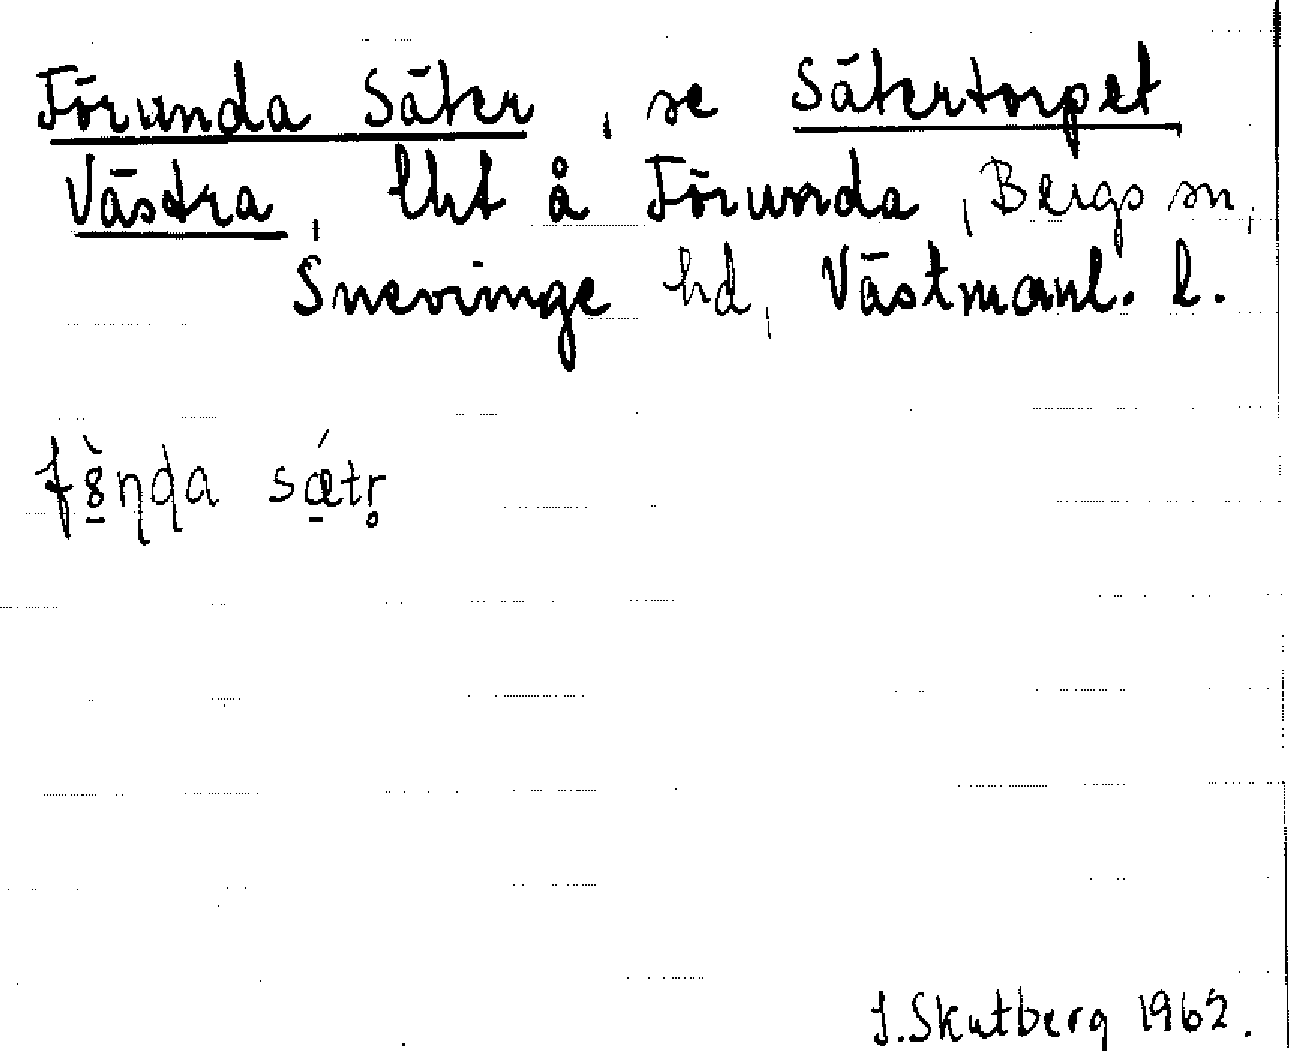 Förunda Säter, se Sätertorpet
Västra, lht å Förunda, Bergs sn,
Snevringe hd, Västmanl. l.
sǽtr̥
J. Skutberg 1962.